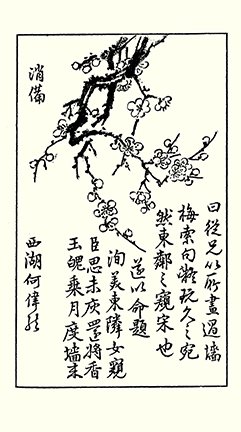 消備
曰從兄以所畫過墻
梅索句凝玩久之宛
然東鄰之窺宋也
遂以命題
洵美東隣女窺
臣思未灰還將香
玉魄乘月度墻来
西湖何偉然